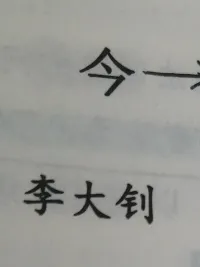 今
李大钊